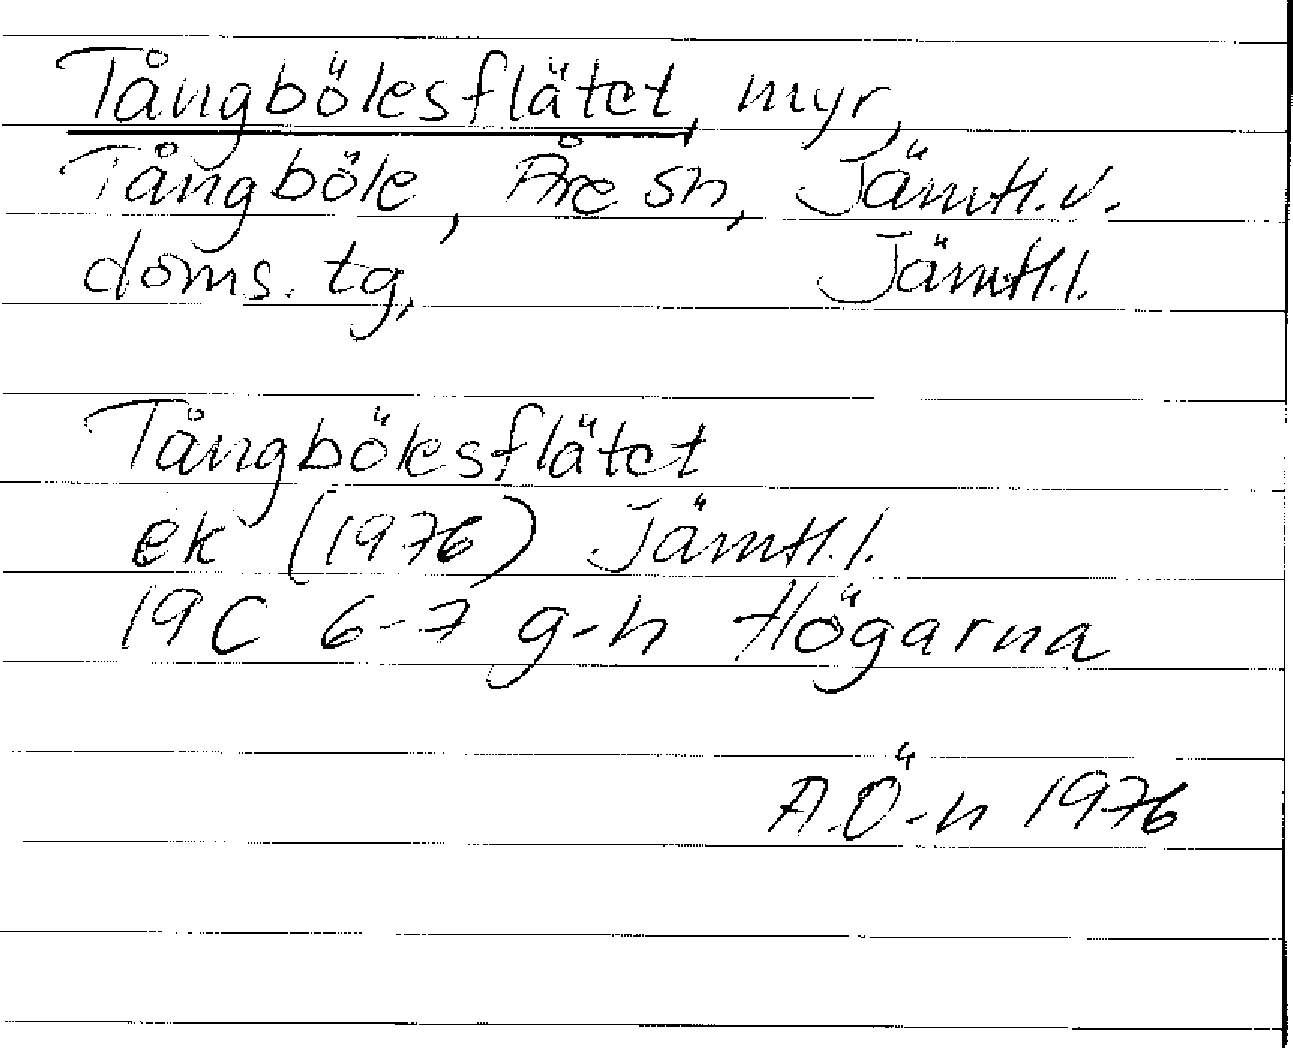 Tångbölesflätet, myr,
Tångböle, Åre sn, Jämtl.v.
doms. tg, Jämtl.l.
Tångbölesflätet
ek (1976) Jämtl.l.
19C 6-7 g-h Högarna
A.Ö-n 1976